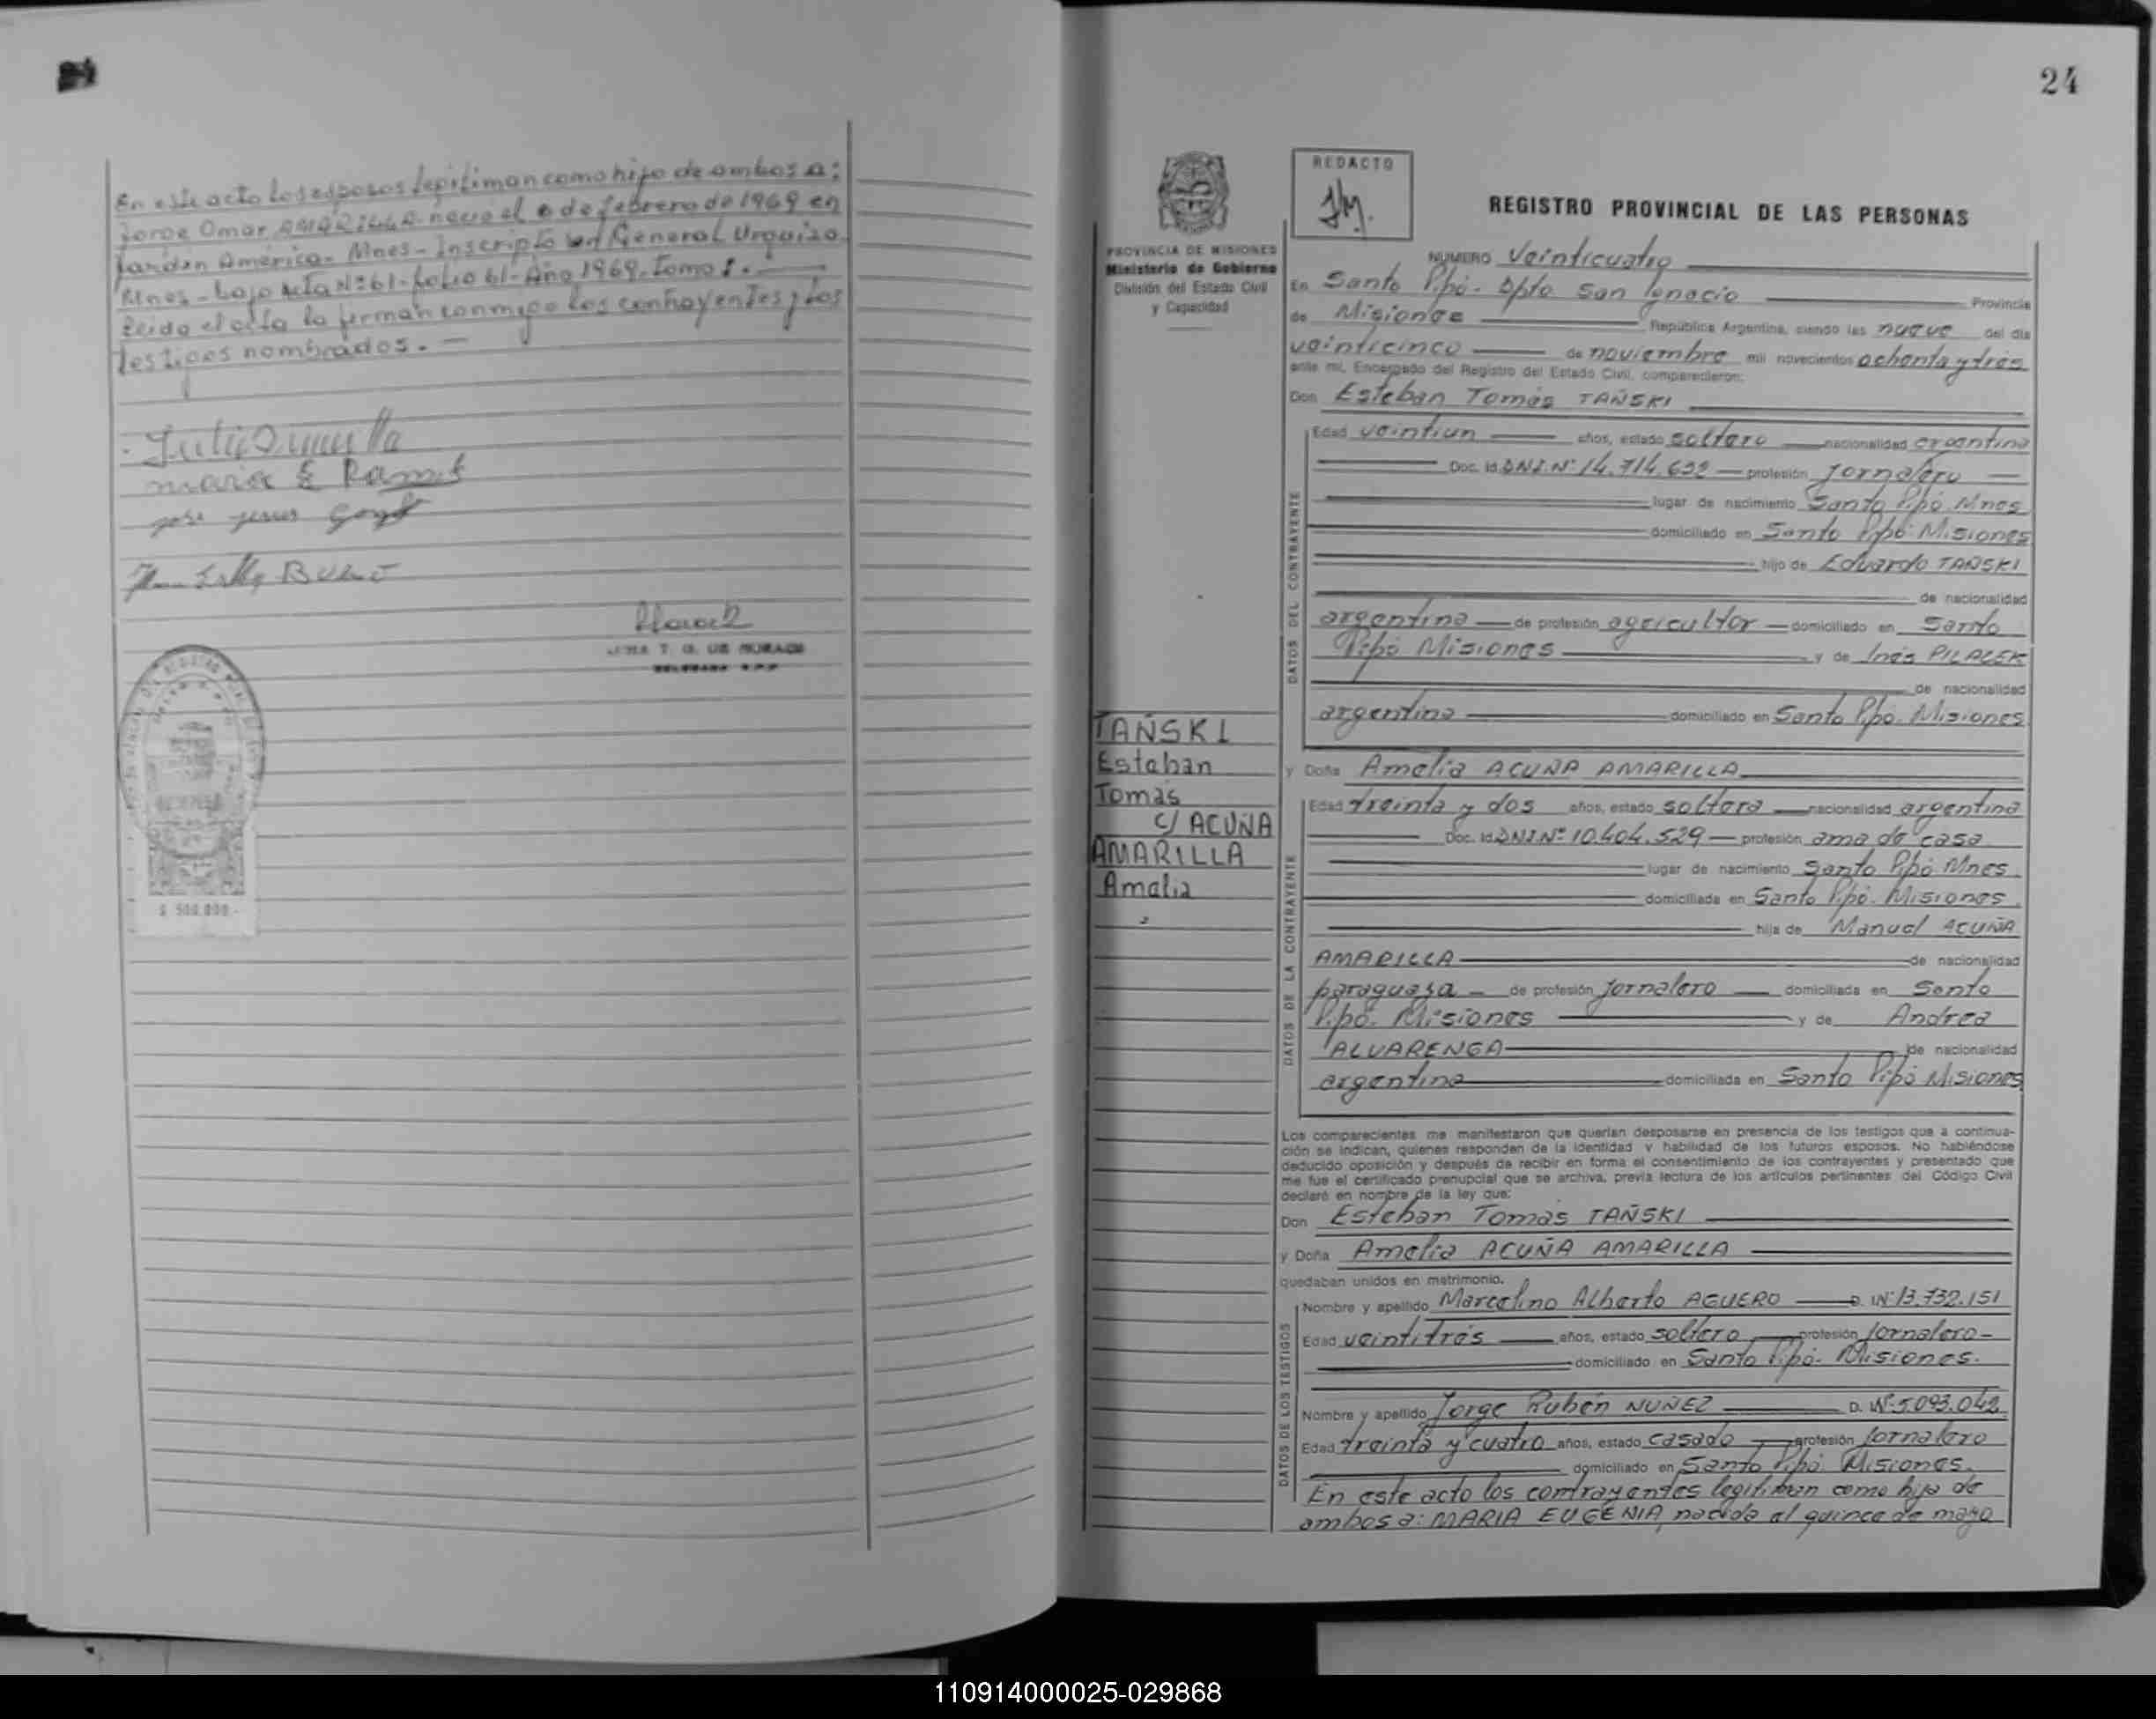 En este acto los esposos legitiman como hijo de ambos a:
Jorge Omar AMARILLA nació el de febrero de 1969 en
Jardín América - Mnes - Inscripto en General Urquiza
Mnes - bajo acta Nº 61 - folio 61 - Año 1969. Tomo I. -
Leido el acta la firman conmigo los contrayentes y los
testigos nombrados. -
Maria E Ramirez
jose jesus
$ 500.000.-
24
REDACTO
PROVINCIA DE MISIONES
Ministerio de Gobierno
División del Estado Civil
y Capacidad
REGISTRO PROVINCIAL DE LAS PERSONAS
NUMERO Veinticuatro
En Santo Pipó - Dpto San Ignacio Provincia
de Misiones República Argentina, siendo las nueve del dia
veinticinco de noviembre mil novecientos ochenta y tres
ante mi, Encargado del Registro del Estado Civil, comparecieron:
Don Esteban Tomás TAÑSKI
Edad veintiun años, estado soltero nacionalidad argentina
Doc. Id. DNI.Nº 14.714.692 profesión Jornalero
lugar de nacimiento Santo Pipó Mnes
domiciliado en Santo Pipó. Misiones
hijo de Eduardo TAÑSKI
de nacionalidad
argentina de profesión agricultor domiciliado en Santo
Pipó Misiones y de Inés PILACEK
de nacionalidad
argentina domiciliado en Santo Pipó. Misiones
DATOS DEL CONTRAYENTE
TAÑSKI
Esteban
Tomás
c/ ACUÑA
AMARILLA
Amalia
y Doña Amelia ACUÑA AMARILLA
Edad treinta y dos años, estado soltera nacionalidad argentina
Doc. Id. DNI.Nº 10.404.529 profesión ama de casa
lugar de nacimiento Santo Pipó Mnes
domiciliada en Santo Pipó. Misiones
hija de Manuel ACUÑA
AMARILLA de nacionalidad
paraguaya de profesión jornalero domiciliada en Santo
Pipó. Misiones y de Andrea
ALVARENGA de nacionalidad
argentina domiciliada en Santo Pipó Misiones
DATOS DE LA CONTRAYENTE
Los comparecientes me manifestaron que querían desposarse en presencia de los testigos que a continua-
ción se indican, quienes responden de la identidad y habilidad de los futuros esposos. No habiéndose
deducido oposición y después de recibir en forma el consentimiento de los contrayentes y presentado que
me fue el certificado prenupcial que se archiva, previa lectura de los artículos pertinentes del Código Civil
declaré en nombre de la ley que:
Don Esteban Tomás TAÑSKI
y Doña Amelia ACUÑA AMARILLA
quedaban unidos en matrimonio.
Nombre y apellido Marcelino Alberto AGUERO D. Nº 13.732.151
Edad veintitrés años, estado soltero profesión Jornalero
domiciliado en Santo Pipó. Misiones.
Nombre y apellido Jorge Rubén NUÑEZ D. Nº 5.093.042
Edad treinta y cuatro años, estado casado profesión Jornalero
domiciliado en Santo Pipó. Misiones.
DATOS DE LOS TESTIGOS
En este acto los contrayentes legitiman como hija de
ambos a: MARIA EUGENIA, nacida el quince de mayo
110914000025-029868